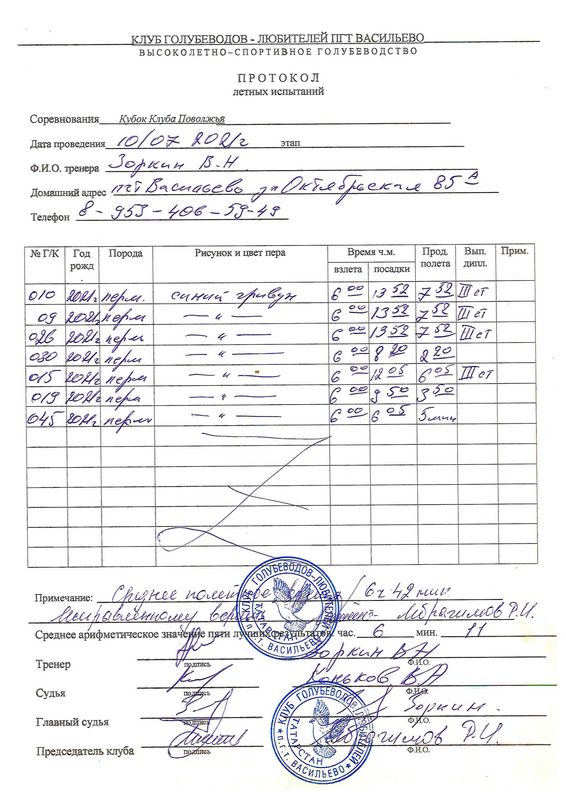 КЛУБ ГОЛУБЕВОДОВ - ЛЮБИТЕЛЕЙ ПГТ ВАСИЛЬЕВО
ВЫСОКОЛЕТНО-СПОРТИВНОЕ ГОЛУБЕВОДСТВО
ПРОТОКОЛ
летных испытаний
Соревнования Кубок Клуба Поволжья
Дата проведения 10/07 2021г этап
Ф.И.О. тренера Зоркин В.Н
Домашний адрес пгт Васильево ул Октябрьская 85 А
Телефон 8-953-406-59-49
№ Г/К Год рожд Порода Рисунок и цвет пера Время ч.м. взлета посадки Прод. полета Вып. дипл. Прим.
010 2021г перм. синий гривун 6 00 13 52 7 52 III ст
09 2021г перм — „ — 6 00 13 52 7 52 III ст
026 2021г перм — „ — 6 00 13 52 7 52 III ст
030 2021г перм — „ — 6 00 8 20 2 20
015 2021г перм — „ — 6 00 12 05 6 05 III ст
019 2021г перм — „ — 6 00 9 50 3 50
045 2021г перм — „ — 6 00 6 05 5 мин
Примечание: Среднее 6ч 42 мин
Исправленному Ибрагимов Р.И.
Среднее арифметическое значение пяти лучших результатов, час. 6 мин. 11
Тренер подпись Зоркин В Н Ф.И.О.
Судья подпись Коньков В А Ф.И.О.
Главный судья подпись Зоркин. Ф.И.О.
Председатель клуба подпись Ибрагимов Р.И. Ф.И.О.
КЛУБ ГОЛУБЕВОДОВ-ЛЮБИТЕЛЕЙ
ТАТАРСТАН
ВАСИЛЬЕВО
КЛУБ ГОЛУБЕВОДОВ-ЛЮБИТЕЛЕЙ
ТАТАРСТАН
п.г.т. ВАСИЛЬЕВО